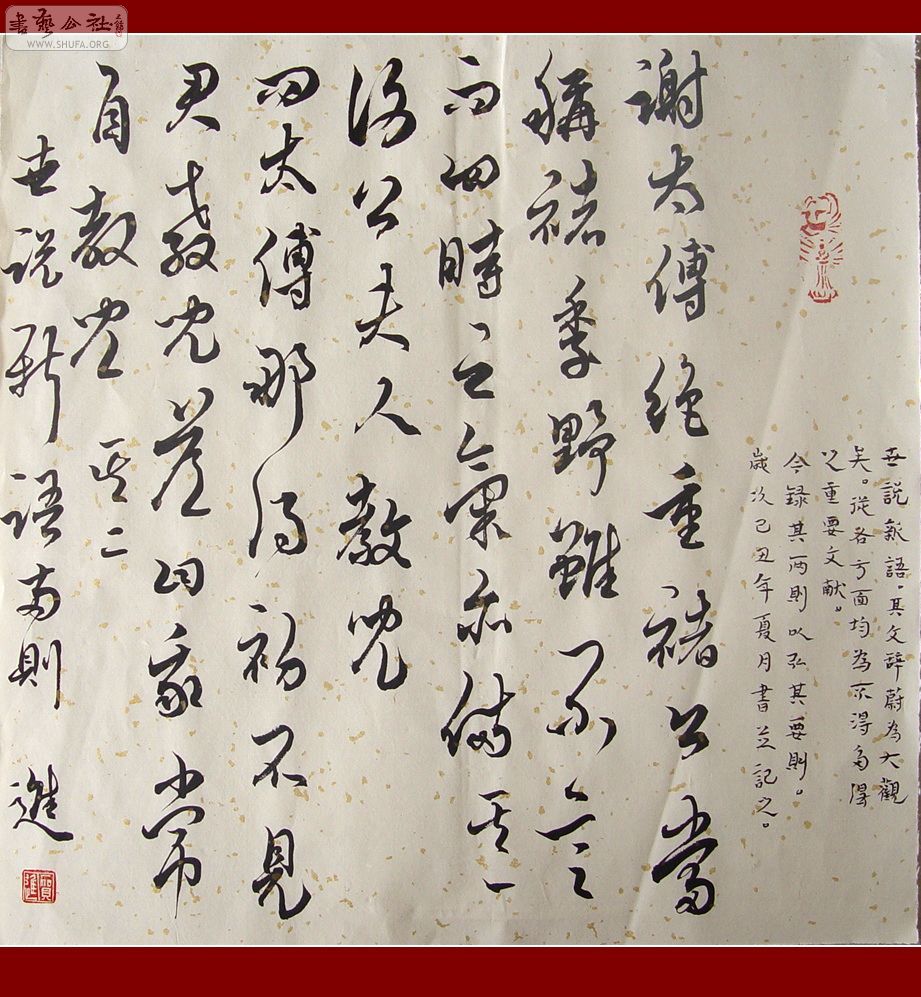 書藝公社
WWW.SHUFA.ORG
世說新語。其文辭蔚為大觀
矣。從各方面均為不得多得
之重要文献。
今錄其两則以弘其要則。
歲次己丑年夏月書並記之。
謝太傅絕重褚公常
稱褚季野雖不言
而四時之氣亦備 其一
謝公夫人教兒
问太傅那得初不見
君教兒答曰我常
自教兒 其二
世说新語两則 進